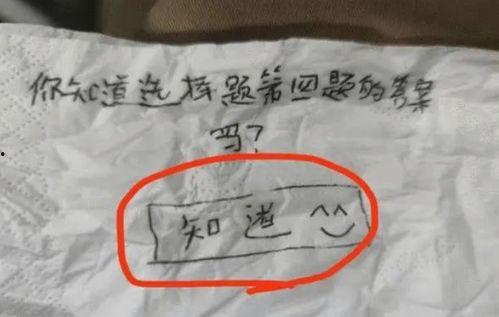 你知道选择题第四题的答案
吗?
知道 ^^